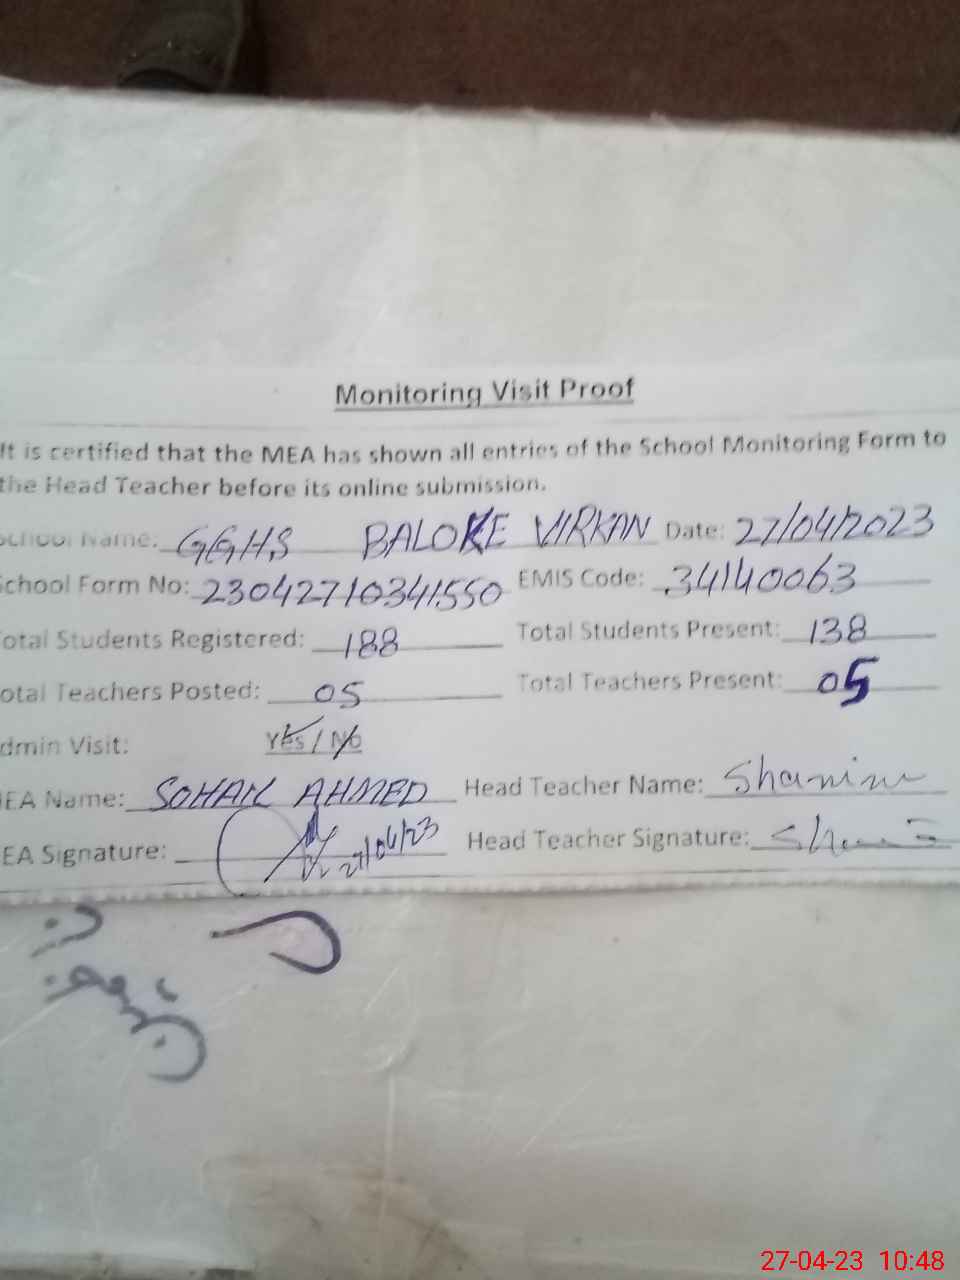 Monitoring Visit Proof
It is certified that the MEA has shown all entries of the School Monitoring Form to
the Head Teacher before its online submission.
School Name: GGHS BALOKE VIRKAN Date: 27/04/2023
School Form No: 23042710341550 EMIS Code: 34140063
Total Students Registered: 188 Total Students Present: 138
Total Teachers Posted: 05 Total Teachers Present: 05
dmin Visit: Yes / No
EA Name: SOHAIL AHMED Head Teacher Name: Shamim
EA Signature: 27/04/23 Head Teacher Signature:
27-04-23 10:48